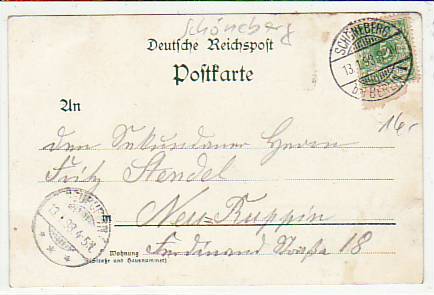 Schöneberg
Deutsche Reichspost
Postkarte
SCHÖNEBERG
13.1.98
b. BERLIN
An
16,-
den Sekundaner Herrn
Fritz Stendel
in Neu-Ruppin
Wohnung
(Straße und Hausnummer)
Ferdinand Straße 18
13.1.98.4-5N.